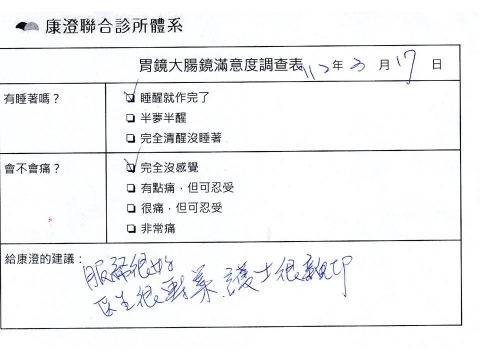 康澄聯合診所體系
胃鏡大腸鏡滿意度調查表 112年3月17日
有睡著嗎？
☑ 睡醒就作完了
❏ 半夢半醒
❏ 完全清醒沒睡著
會不會痛？
☑ 完全沒感覺
❏ 有點痛，但可忍受
❏ 很痛，但可忍受
❏ 非常痛
給康澄的建議：
服務很好
醫生很專業、護士很親切